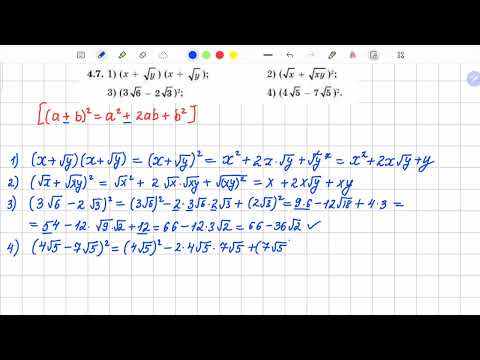 4.7. 1) (x + √y)(x + √y); 2) (√x + √xy)²;
3) (3√6 − 2√3)²; 4) (4√5 − 7√5)².
[(a + b)² = a² + 2ab + b²]
1) (x+√y)(x+√y) = (x+√y)² = x² + 2x·√y + √y² = x² + 2x√y + y
2) (√x + √xy)² = √x² + 2√x·√xy + √(xy)² = x + 2x√y + xy
3) (3√6 − 2√3)² = (3√6)² − 2·3√6·2√3 + (2√3)² = 9·6 − 12√18 + 4·3 =
= 54 − 12·√9·√2 + 12 = 66 − 12·3√2 = 66 − 36√2 ✓
4) (4√5 − 7√5)² = (4√5)² − 2·4√5·7√5 + (7√5